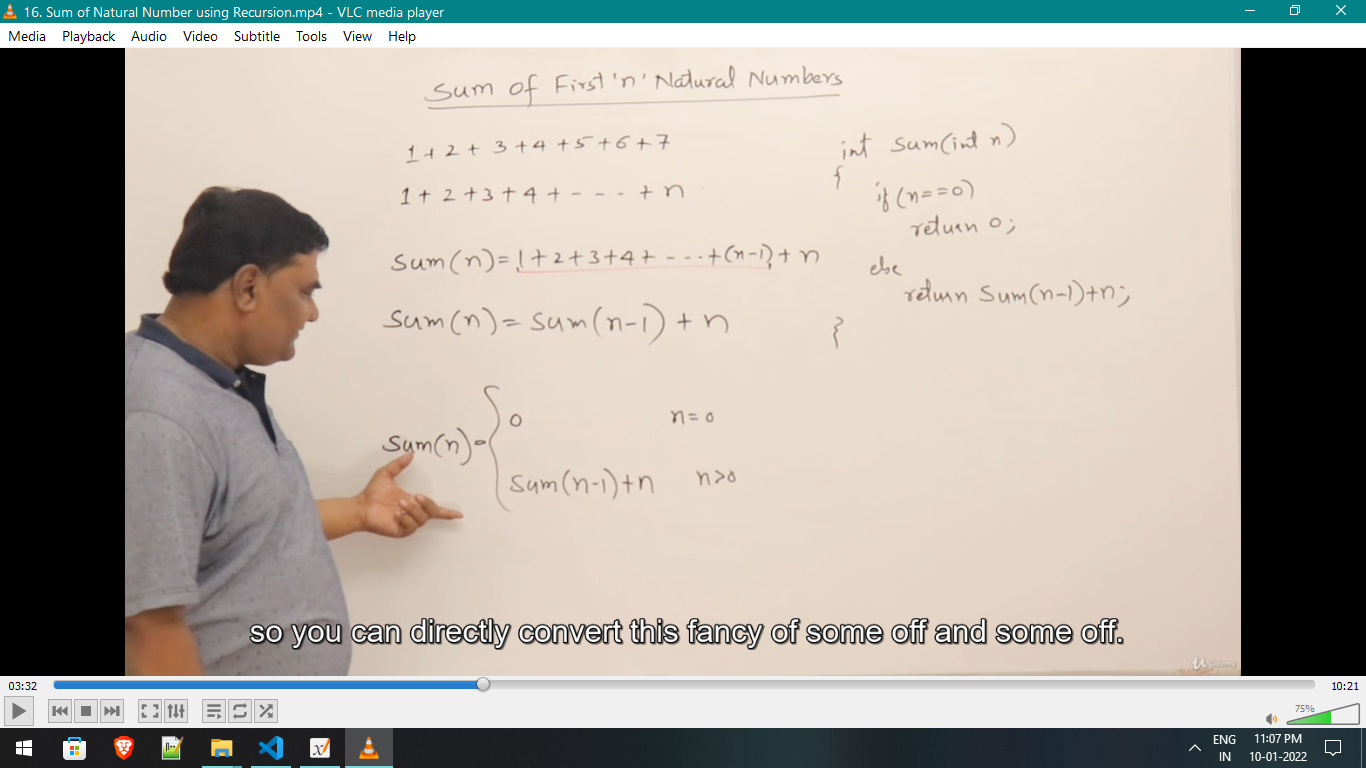 16. Sum of Natural Number using Recursion.mp4 - VLC media player
Media Playback Audio Video Subtitle Tools View Help
Sum of First 'n' Natural Numbers
1 + 2 + 3 + 4 + 5 + 6 + 7
1 + 2 + 3 + 4 + - - - + n
Sum(n) = 1 + 2 + 3 + 4 + - - - + (n-1) + n
Sum(n) = Sum(n-1) + n
Sum(n) = {
0 n = 0
Sum(n-1) + n n > 0
int Sum(int n)
{
if (n == 0)
return 0;
else
return Sum(n-1) + n;
}
so you can directly convert this fancy of some off and some off.
Udemy
03:32 10:21
75%
ENG
IN
11:07 PM
10-01-2022